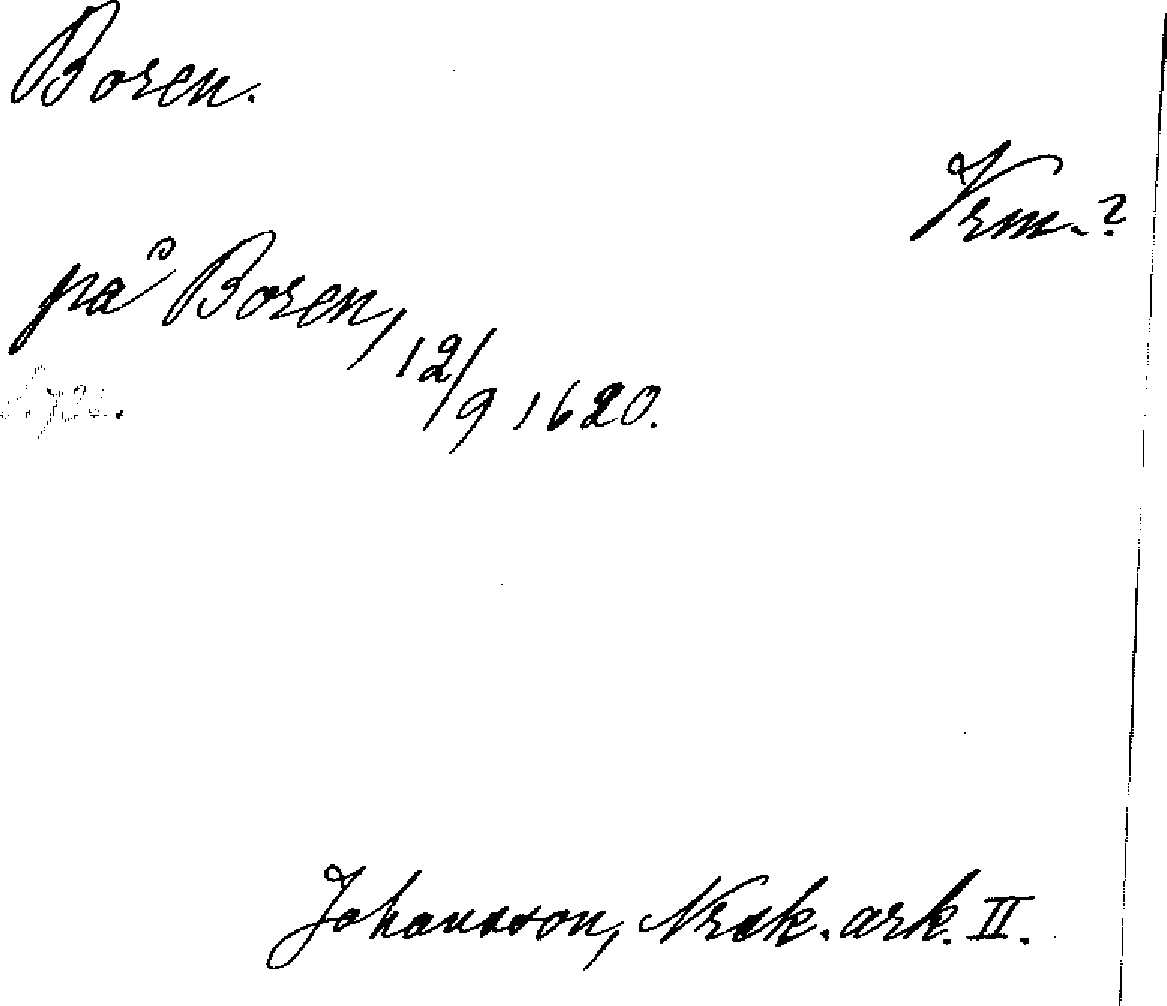 Boren.
Vrm.?
på Boren, 12/9 1620.
Johansson, Nrsk. ark. II.